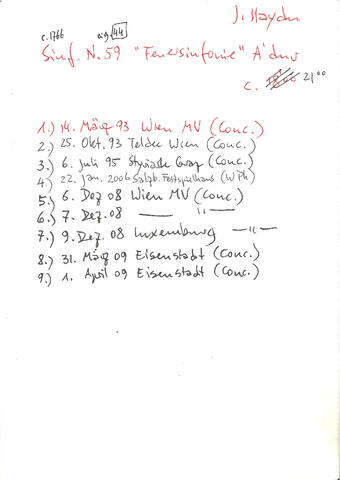 J. Haydn
c. 1766 eig. 44
Sinf. N. 59 "Feuersinfonie" A' dur
c. 21°°
1.) 14. März 93 Wien MV (Conc.)
2.) 25. Okt. 93 Teldec Wien (Conc.)
3.) 6. Juli 95 Styriarte Graz (Conc.)
4.) 22. Jan. 2006 Salzb. Festspielhaus (WPh)
5.) 6. Dez 08 Wien MV (Conc.)
6.) 7. Dez. 08 — " —
7.) 9. Dez. 08 Luxembourg — " —
8.) 31. März 09 Eisenstadt (Conc.)
9.) 1. April 09 Eisenstadt (Conc.)